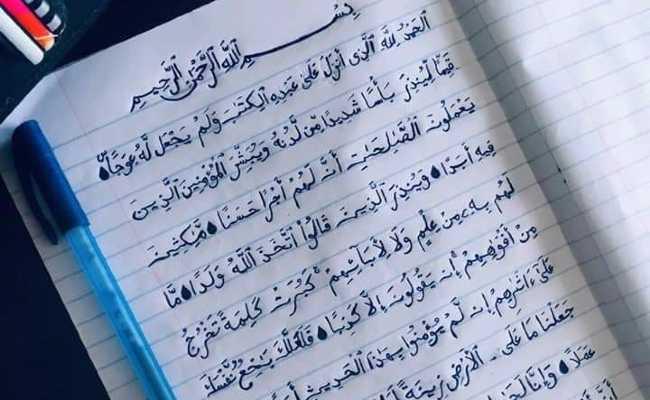 بِسْمِ اللَّهِ الرَّحْمَٰنِ الرَّحِيمِ
الْحَمْدُ لِلَّهِ الَّذِي أَنْزَلَ عَلَىٰ عَبْدِهِ الْكِتَٰبَ وَلَمْ يَجْعَلْ لَهُ عِوَجًا
قَيِّمًا لِيُنْذِرَ بَأْسًا شَدِيدًا مِنْ لَدُنْهُ وَيُبَشِّرَ الْمُؤْمِنِينَ الَّذِينَ
يَعْمَلُونَ الصَّٰلِحَٰتِ أَنَّ لَهُمْ أَجْرًا حَسَنًا مَٰكِثِينَ
فِيهِ أَبَدًا وَيُنْذِرَ الَّذِينَ قَالُوا اتَّخَذَ اللَّهُ وَلَدًا مَّا
لَهُمْ بِهِ مِنْ عِلْمٍ وَلَا لِأَبَائِهِمْ كَبُرَتْ كَلِمَةً تَخْرُجُ
مِنْ أَفْوَٰهِهِمْ إِنْ يَقُولُونَ إِلَّا كَذِبًا فَلَعَلَّكَ بَٰخِعٌ نَفْسَكَ
عَلَىٰ ءَاثَٰرِهِمْ إِنْ لَمْ يُؤْمِنُوا بِهَٰذَا الْحَدِيثِ
جَعَلْنَا مَا عَلَى الْأَرْضِ زِينَةً
عَمَلًا وَإِنَّا